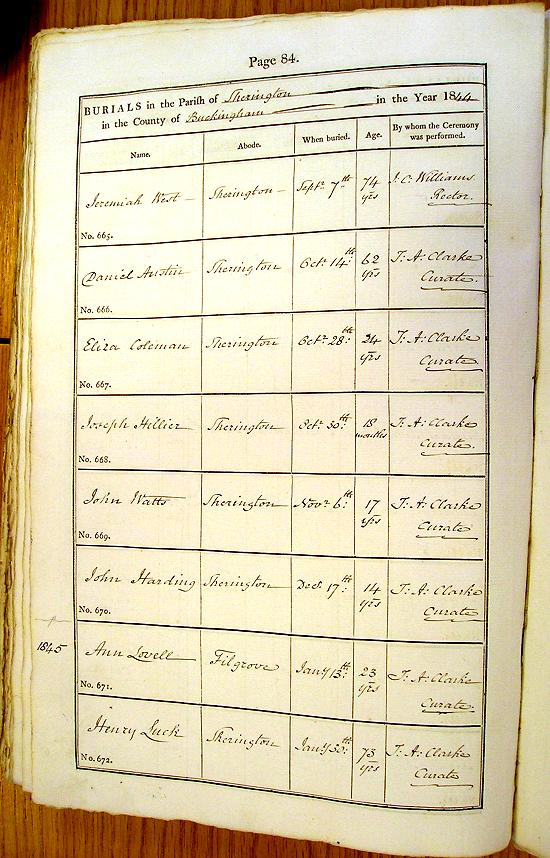 Page 84.
BURIALS in the Parish of Sherington in the Year 1844
in the County of Buckingham
Name. Abode. When buried. Age. By whom the Ceremony was performed.
Jeremiah West Sherington Septr 7th 74 yrs J. C. Williams Rector.
No. 665.
Daniel Austin Sherington Octr 14th 62 yrs T. A. Clarke Curate.
No. 666.
Eliza Coleman Sherington Octr 28th 24 yrs T. A. Clarke Curate
No. 667.
Joseph Hillier Sherington Octr 30th 18 months T. A. Clarke Curate.
No. 668.
John Watts Sherington Novr 6th 17 yrs T. A. Clarke Curate
No. 669.
John Harding Sherington Decr 17th 14 yrs T. A. Clarke Curate
No. 670.
1845 Ann Lovell Filgrove Jany 13th 23 yrs T. A. Clarke Curate
No. 671.
Henry Luck Sherington Jany 30th 73 yrs T. A. Clarke Curate
No. 672.